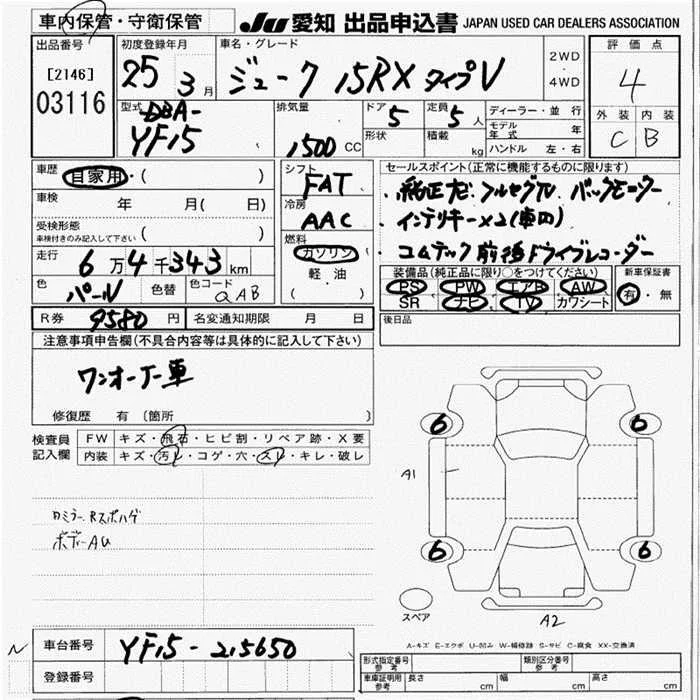 車内保管・守衛保管
JU 愛知 出品申込書 JAPAN USED CAR DEALERS ASSOCIATION
出品番号
[2146]
03116
初度登録年月
25 3月
車名・グレード
ジューク 15RX タイプV
2WD
・
4WD
評価点
4
外装 内装
C B
型式
DBA-
YF15
排気量
1500 CC
ドア
5
定員
5人
形状
積載
kg
ディーラー・並行
モデル年式 年
ハンドル 左・右
車歴
自家用・( )
車検
年 月( 日)
受検形態
車検付きのみ記入して下さい ( )
走行
6万4千343km
色
パール
色替
色コード
QAB
シフト
FAT
冷房
AAC
燃料
ガソリン
軽油
( )
セールスポイント(正常に機能するものに限ります)
・純正ナビ フルセグTV バックモニター
・インテリキー×2(車内)
・コムテック前後ドライブレコーダー
装備品(純正品に限り○をつけてください)
PS PW エアB AW
SR ナビ TV カワシート
新車保証書
有・無
R券 9580円
名変通知期限 月 日
後日品
注意事項申告欄(不具合内容等は具体的に記入して下さい)
ワンオーナー車
修復歴 有 〔箇所 〕
検査員
記入欄
FW キズ・飛石・ヒビ割・リペア跡・X要
内装 キズ・汚レ・コゲ・穴・スレ・キレ・破レ
ロミラーRスポハゲ
ボディーAU
6 6
A1
6 6
スペア
A2
A-キズ E-エクボ U-凹み W-補修跡 S-サビ C-腐食 XX-交換済
N
車台番号
YF15-215650
登録番号
形式指定番号
参考
類別区分番号
参考
車庫証明用
参考
長さ cm 幅 cm 高さ cm